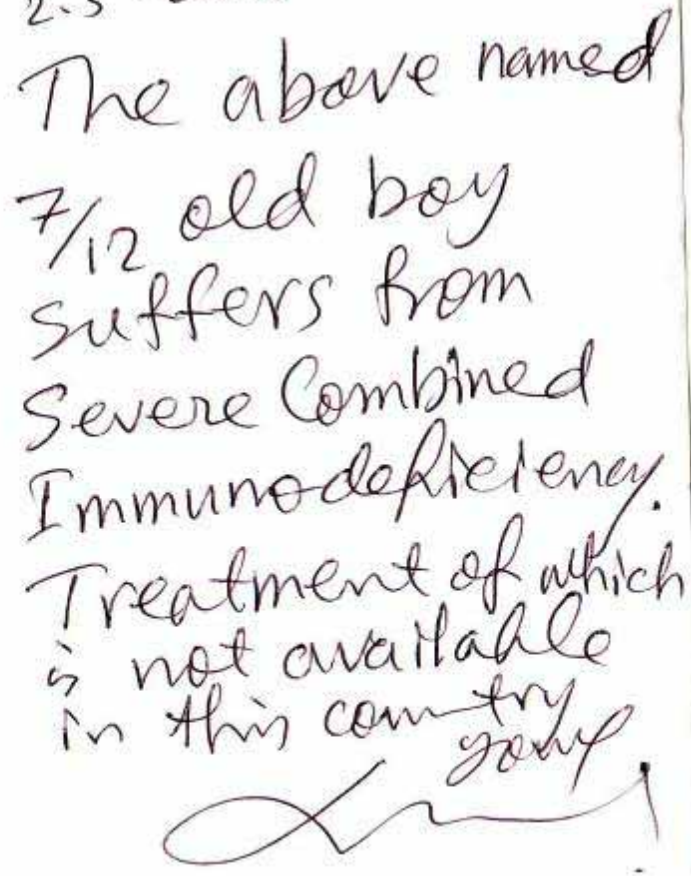 2.5
The above named
7/12 old boy
suffers from
Severe Combined
Immunodeficiency.
Treatment of which
is not available
in this country
yours